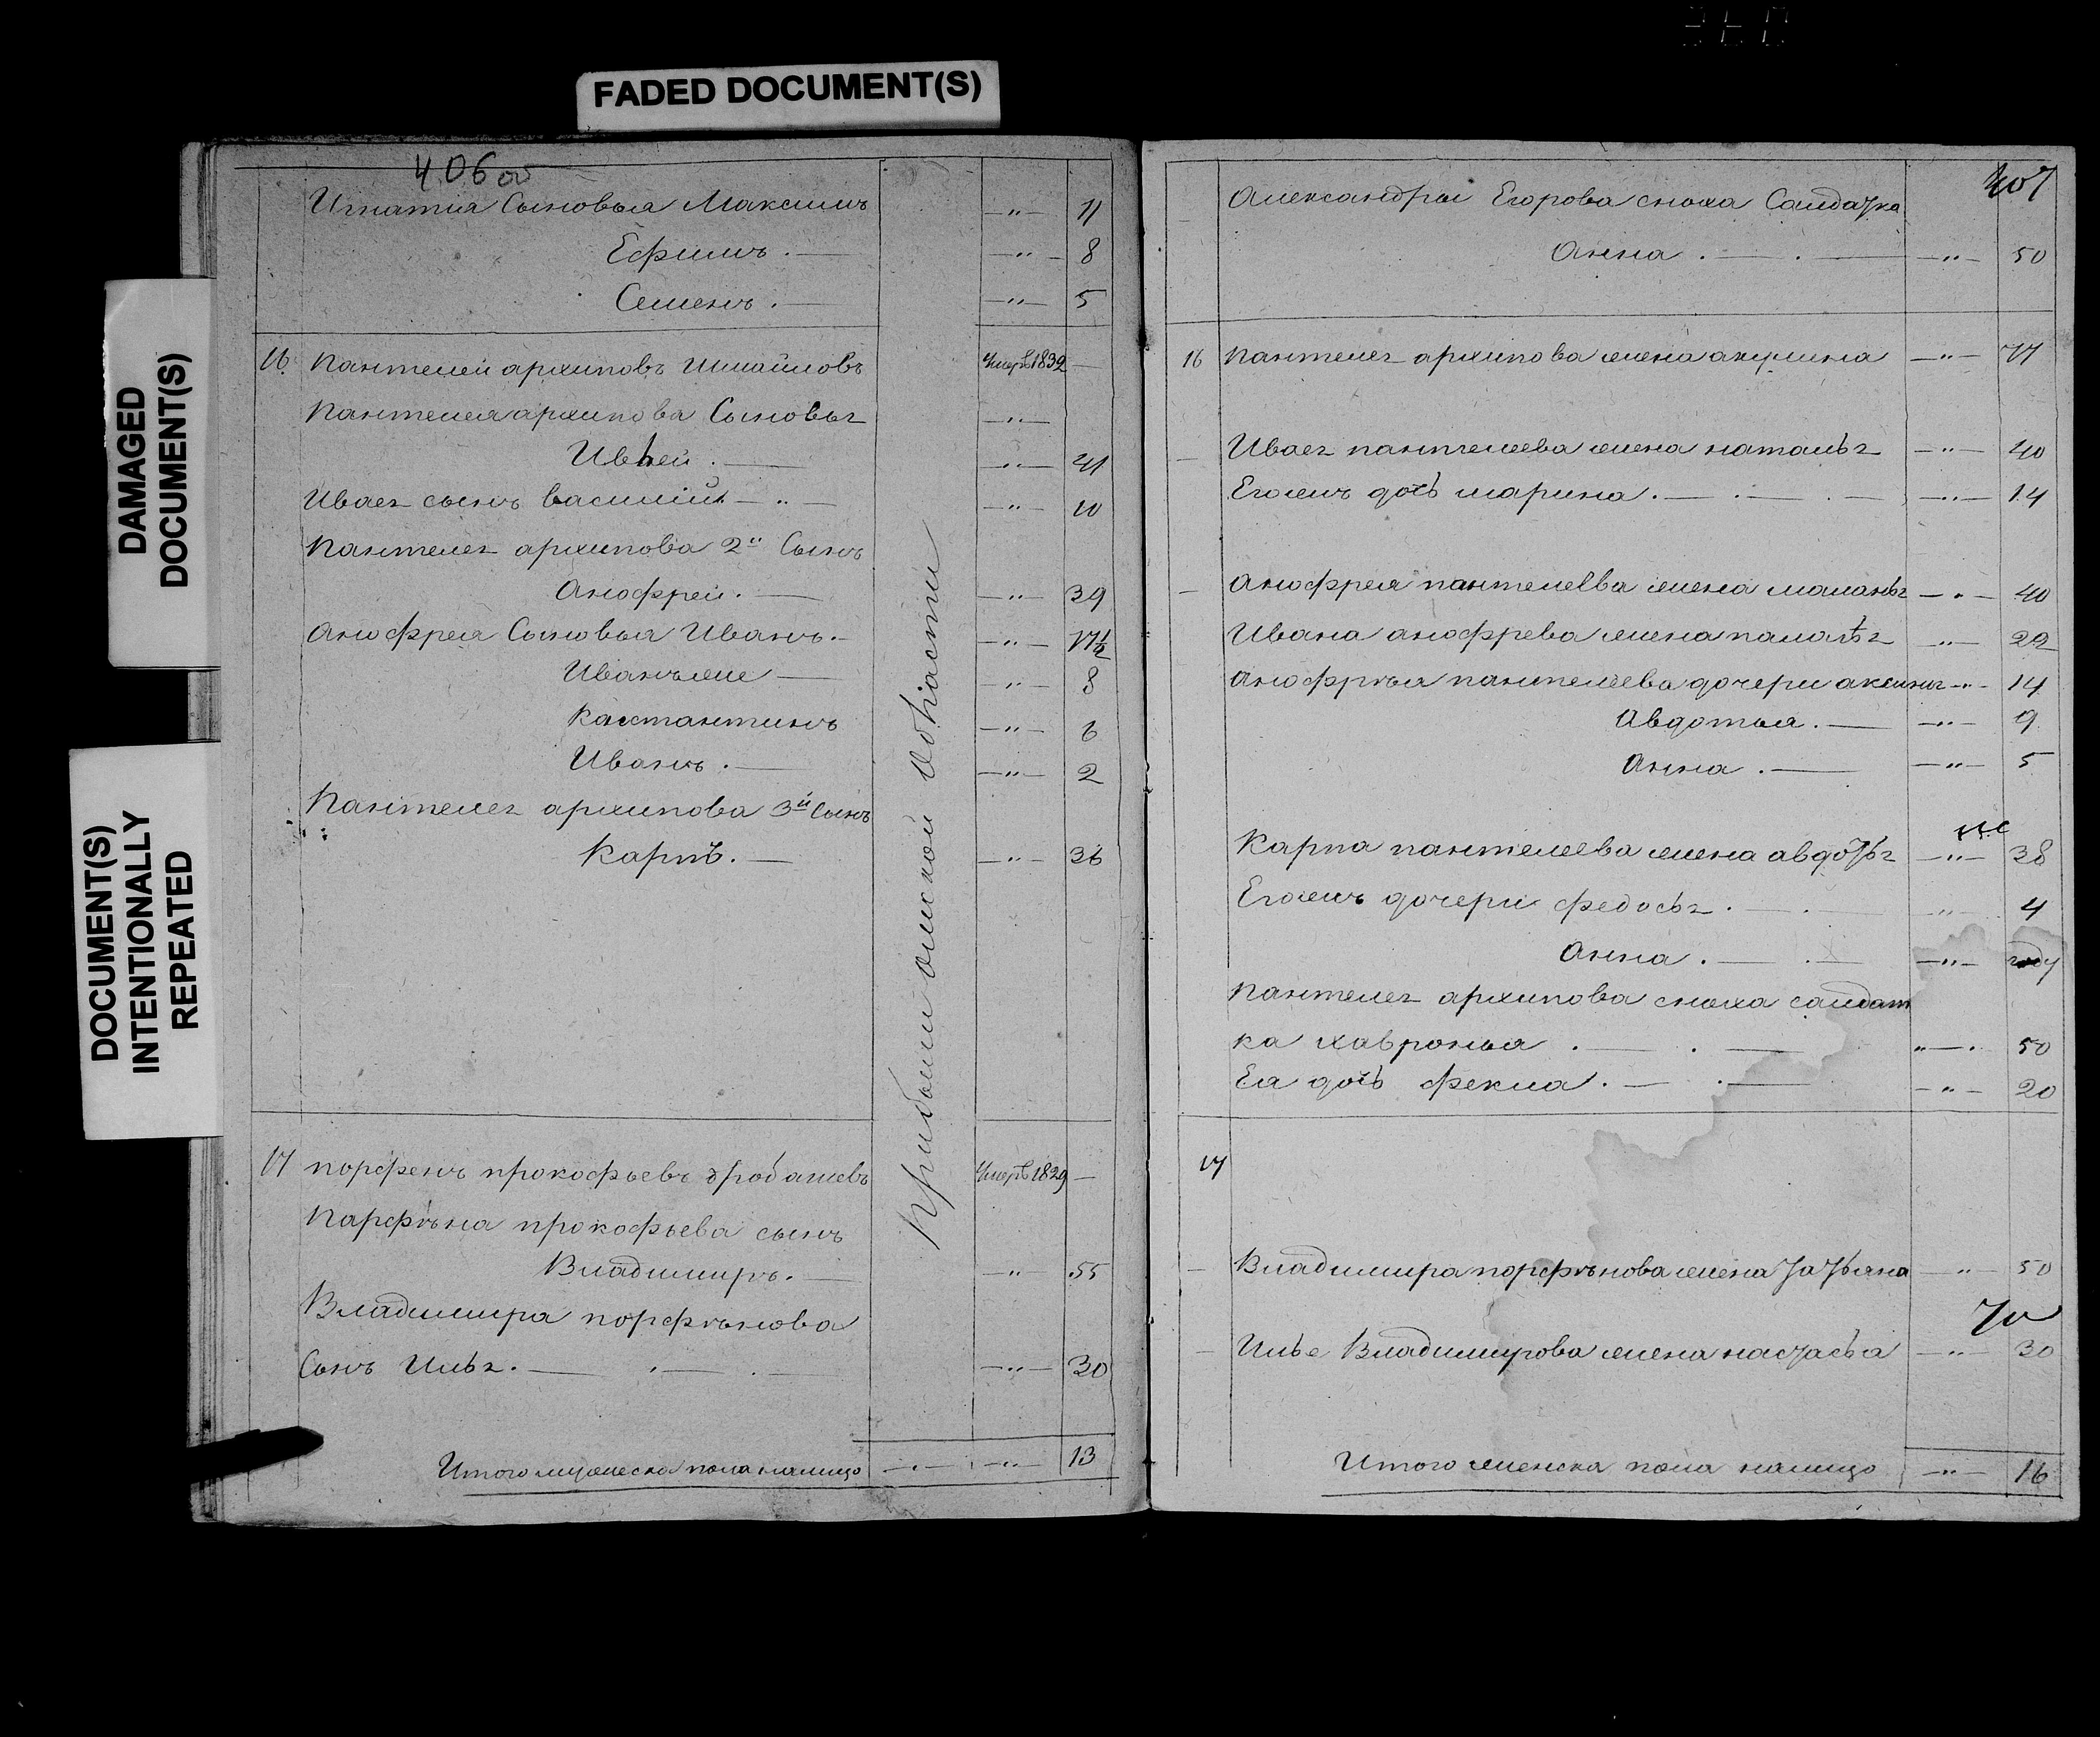 FADED DOCUMENT(S)
DAMAGED
DOCUMENT(S)
DOCUMENT(S)
INTENTIONALLY
REPEATED
406 об
Игнатия Сыновья Максимъ —"— 11
Ефимъ. — —"— 8
Семенъ. — —"— 5
16 Пантелей архиповъ Шмайловъ Умеръ 1832 —
Пантелея архипова Сыновья —"—
Ивѣей. — —"— 41
Ивоея сынъ василий — " — —"— 10
Пантелея архипова 2й Сынъ
Анофрей. — —"— 39
Анофрея Сыновья Иванъ. — —"— 17½
Иванъ же — —"— 8
Костантинъ —"— 6
Иванъ. — —"— 2
Пантелея архипова 3й Сынъ
Карпъ. — —"— 36
17 порфенъ прокофьевъ дробашевъ Умеръ 1829 —
Парфѣна прокофьева сынъ
Владимиръ. — —"— 55
Владимира порфѣнова
Сынъ Илья. — —"— 30
Итого мужеска пола налицо —"— 13
Прибыли омской области
407
Александры Егорова сноха Салдатка
Анна. — . — —"— 50
16 Пантелея архипова жена акулина —"— 77
Ивоея пантелеева жена наталья —"— 40
Его жъ дочь марина. — —"— 14
Анофрея пантелеева жена маланья —"— 40
Ивана анофрева жена палагѣя —"— 22
Анофрѣя пантелеева дочери аксинья —"— 14
Авдотья. — —"— 9
Анна. — —"— 5
Карпа пантелеева жена авдотья —"— 38
Его жъ дочери федосья. — —"— 4
Анна. — —"— году
Пантелея архипова сноха салдат
ка хавронья. — . — —"— 50
Ея дочь фекла. — —"— 20
17
Владимира порфѣнова жена татьяна —"— 50
Илье Владимирова жена настасья —"— 30
Итого женска пола налицо —"— 16